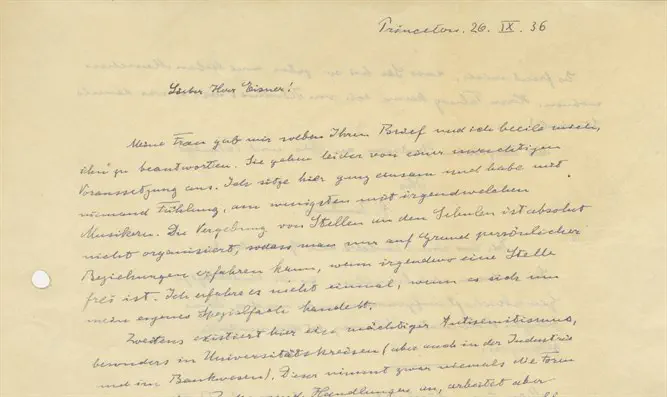 Princeton. 26. IX. 36
Lieber Herr Eisner!
Meine Frau gab mir soeben Ihren Brief und ich beeile mich,
ihn zu beantworten. Sie gehen leider von einer unrichtigen
Voraussetzung aus. Ich sitze hier ganz einsam und habe mit
niemand Fühlung, am wenigsten mit irgendwelchen
Musikern. Die Vergebung von Stellen an den Schulen ist absolut
nicht organisiert, sodass man nur auf Grund persönlicher
Beziehungen erfahren kann, wenn irgendwo eine Stelle
frei ist. Ich erfahre es nicht einmal, wenn es sich um
mein eigenes Spezialfach handelt.
Zweitens existiert hier ein mächtiger Antisemitismus,
besonders in Universitätskreisen (aber auch in der Industrie
und im Bankwesen). Dieser nimmt zwar niemals die Form
Handlungen an, arbeitet aber